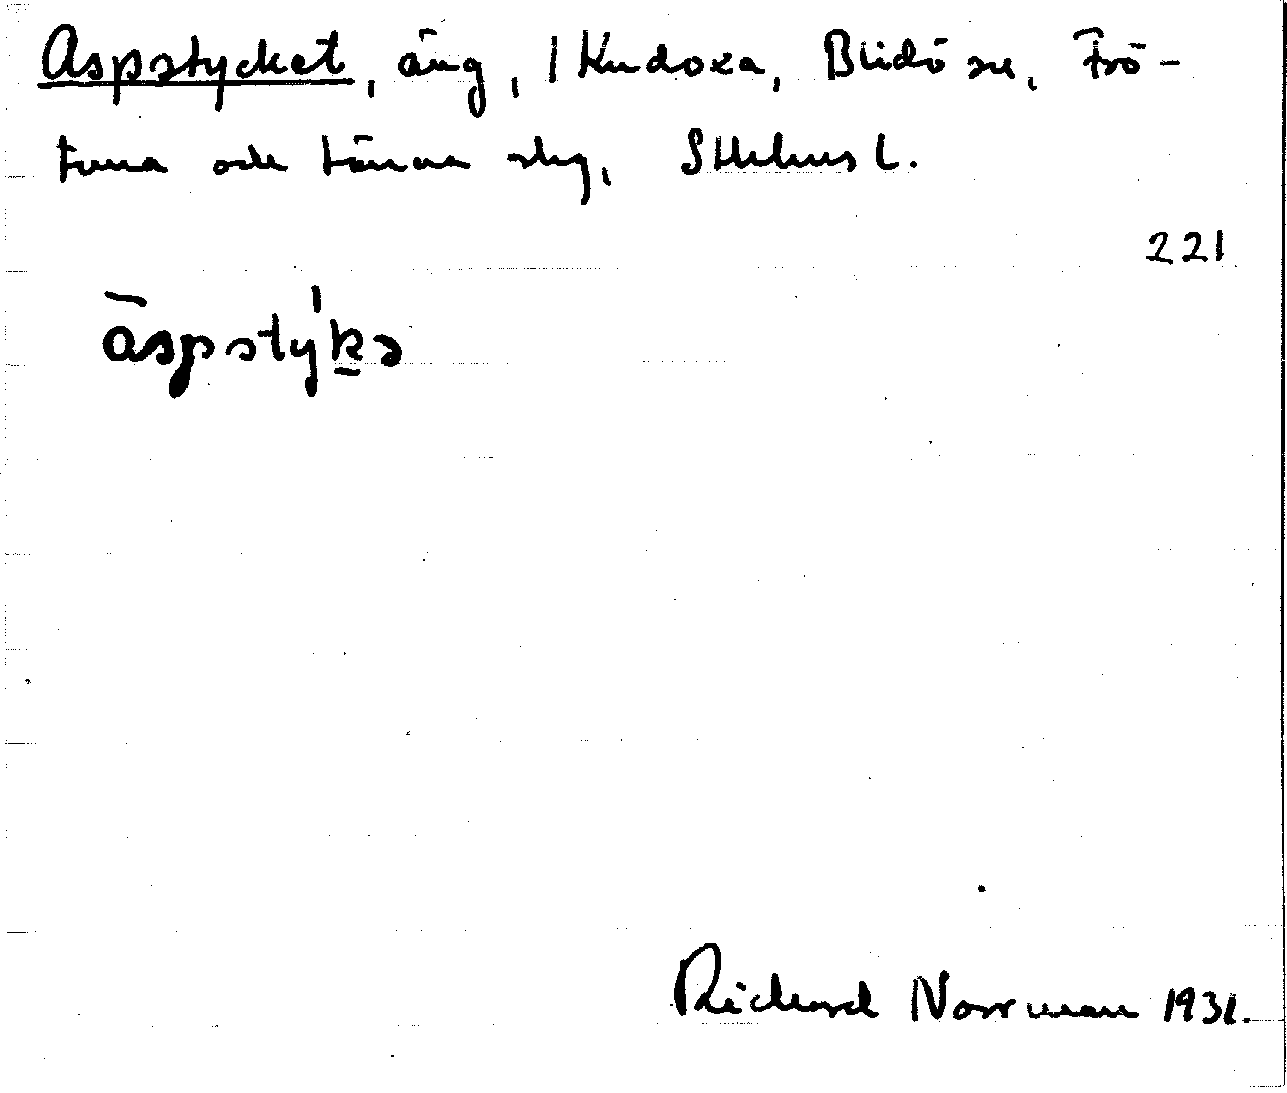 Aspstycket, äng, 1 Kudoxa, Blidö sn, Frö-
tuna och Länna slg, Sthlms l.
221
āspsty̍k̠ə
Richard Norrman 1931.